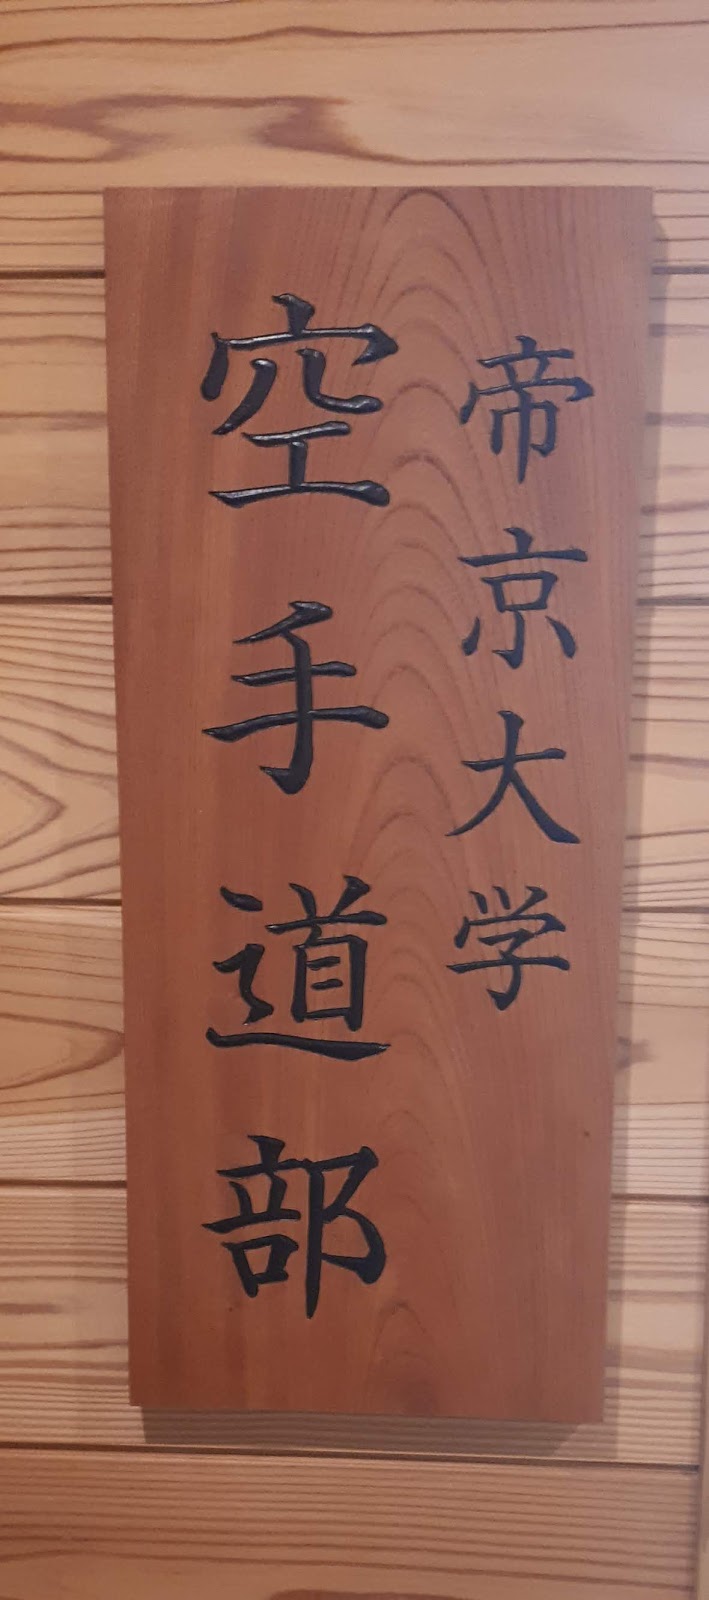 帝京大学
空手道部